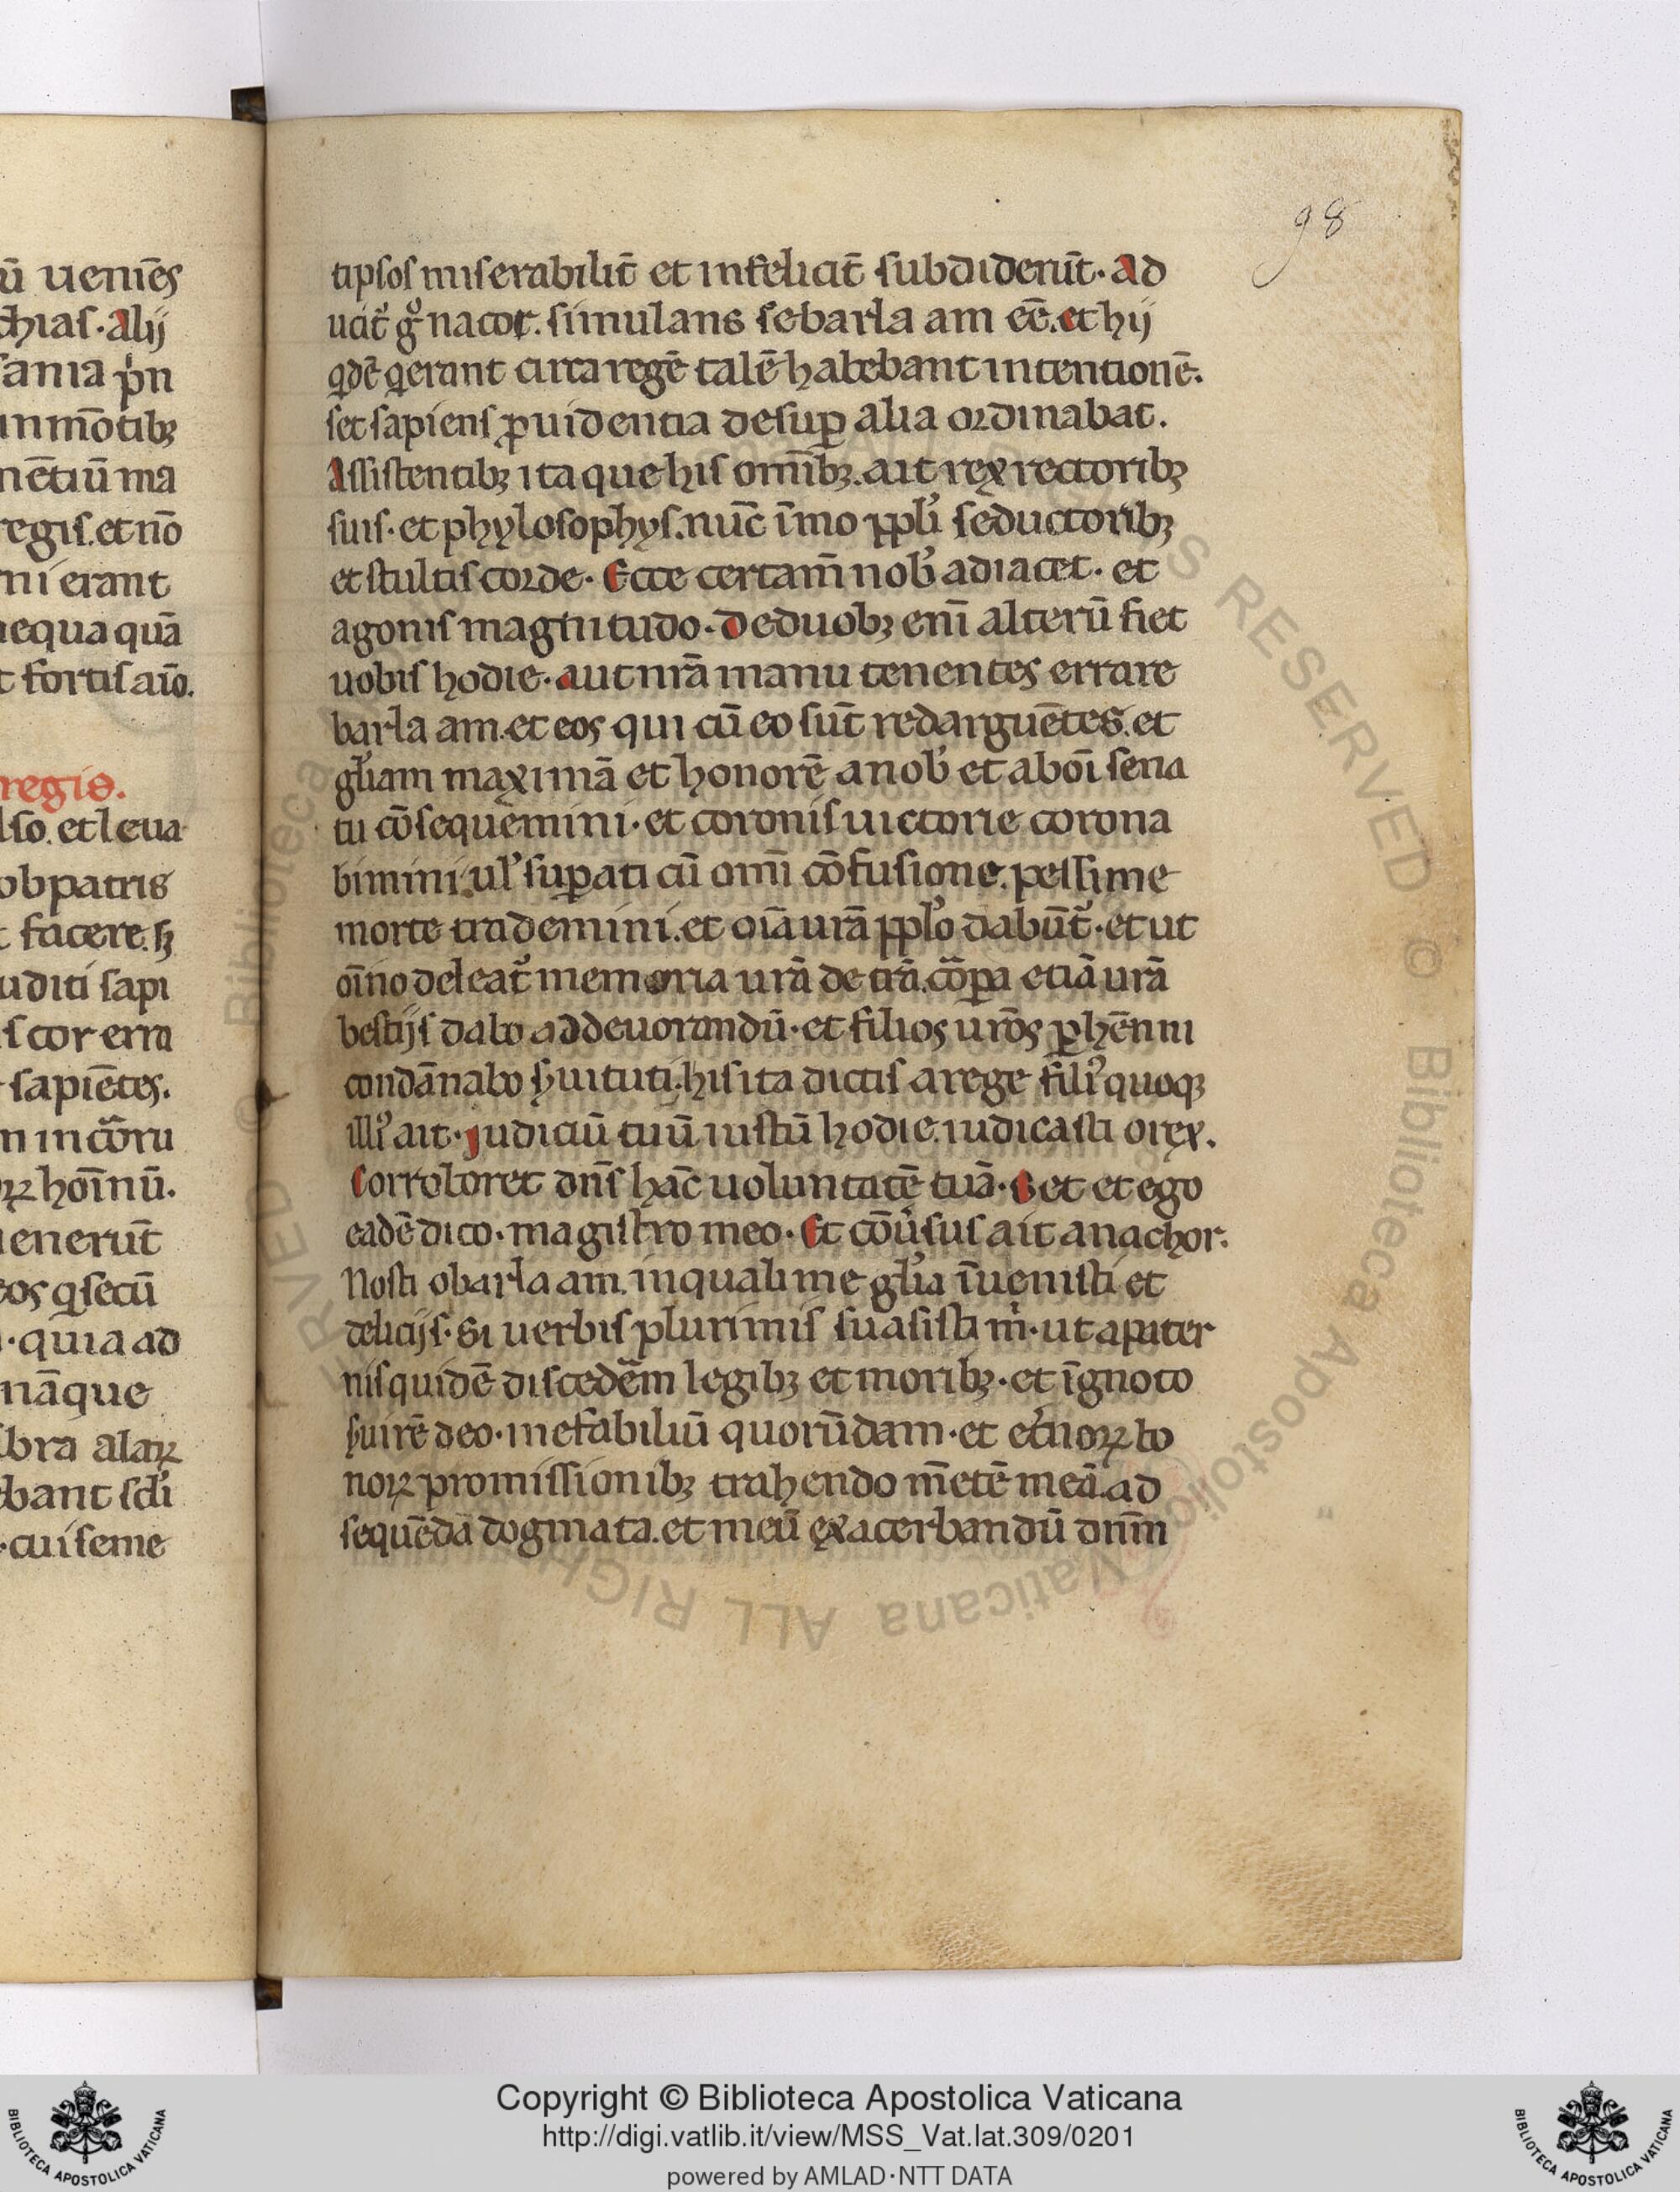 ū ueniēs
chias. Alij
sania pͥn
inmōtibꝫ
nētiū ma
regis. et nō
ni erant
nequa quā
t fortis aīo.
regis.
lso. et leua
ob patris
t facere. sꝫ
uditi sapi
is cor erra
sapiētes.
m in cōru
oꝝ hoīnū.
uenerūt
eos q secū
quia ad
nāque
bra alaꝝ
bant scī
cui seme
98
tipsos miserabilit̄ et infelicit̄ subdiderūt. Ad
ucit̉ gͦ nacor. simulans se barla am eē. et hij
qdē qerant circa regē talē habebant intentionē.
set sapiens ꝓuidentia desuꝑ alia ordinabat.
Assistentibꝫ itaque his om̄ibꝫ. ait rex rectoribꝫ
suis. et phylosophys. nūc īmo ppl̓i seductoribꝫ
et stultis corde. Ecce certam̄ nob̓ adiacet. et
agonis magnitudo. De duobꝫ enī alterū fiet
uobis hodie. aut nrā manu tenentes errare
barla am. et eos qui cū eo sūt redarguētes. et
gl̓iam maximā et honorē a nob̓ et ab oī sena
tu cōsequemini. et coronis uictorie corona
bimini. ul̓ suꝑati cū om̄i cōfusione. pessime
morte trademini. et oīa urā ppl̓o dabūt̉. et ut
oīno deleat̉ memoria urā de trā. cōꝑa etiā urā
bestijs dabo ad deuorandū. et filios urōs ꝑhēnni
condānabo s̓uituti. his ita dictis a rege fili᾽ quoqꝫ
illi᾽ ait. Judiciū tuū iustū hodie. iudicasti o rex.
Corroboret dn̄s hāc uoluntatē tuā. Set et ego
eadē dico. magistro meo. Et cōu̓sus ait anachor.
Nosti o barla am. in quali me gl̓ia īuenisti et
delicijs. Si uerbis plurimis suasisti m̍. ut a pater
nis quidē discedēm legibꝫ et moribꝫ. et īgnoto
s̓uirē deo. inefabiliū quorūdam. et et̓noꝝ bo
noꝝ promissionibꝫ trahendo m̄etē meā. ad
sequēda dogmata. et meū exacerbandū dnm̄
Copyright © Biblioteca Apostolica Vaticana
http://digi.vatlib.it/view/MSS_Vat.lat.309/0201
powered by AMLAD·NTT DATA